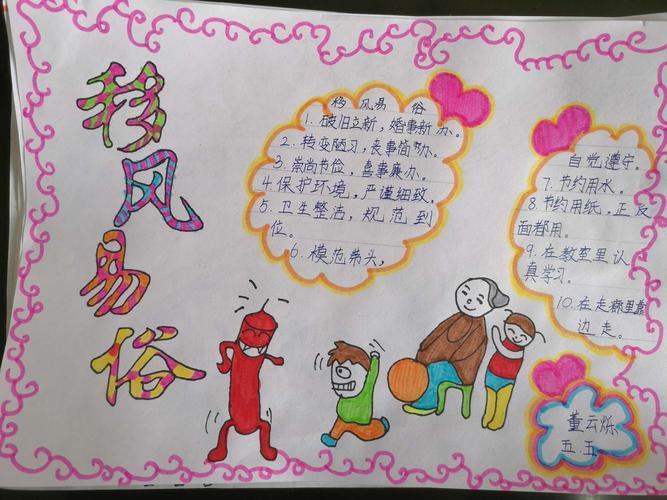 移风易俗
移 风易 俗
1. 破旧立新，婚事新办。
2. 转变陋习，丧事简办。
3. 崇尚节俭，喜事廉办。
4. 保护环境，严谨细致。
5. 卫生整洁，规范到
位。
6. 模范带头，
自觉遵守。
7. 节约用水。
8. 节约用纸，正反
面都用。
9. 在教室里认
真学习。
10. 在走廊里靠
边走。
董云烁
五.五